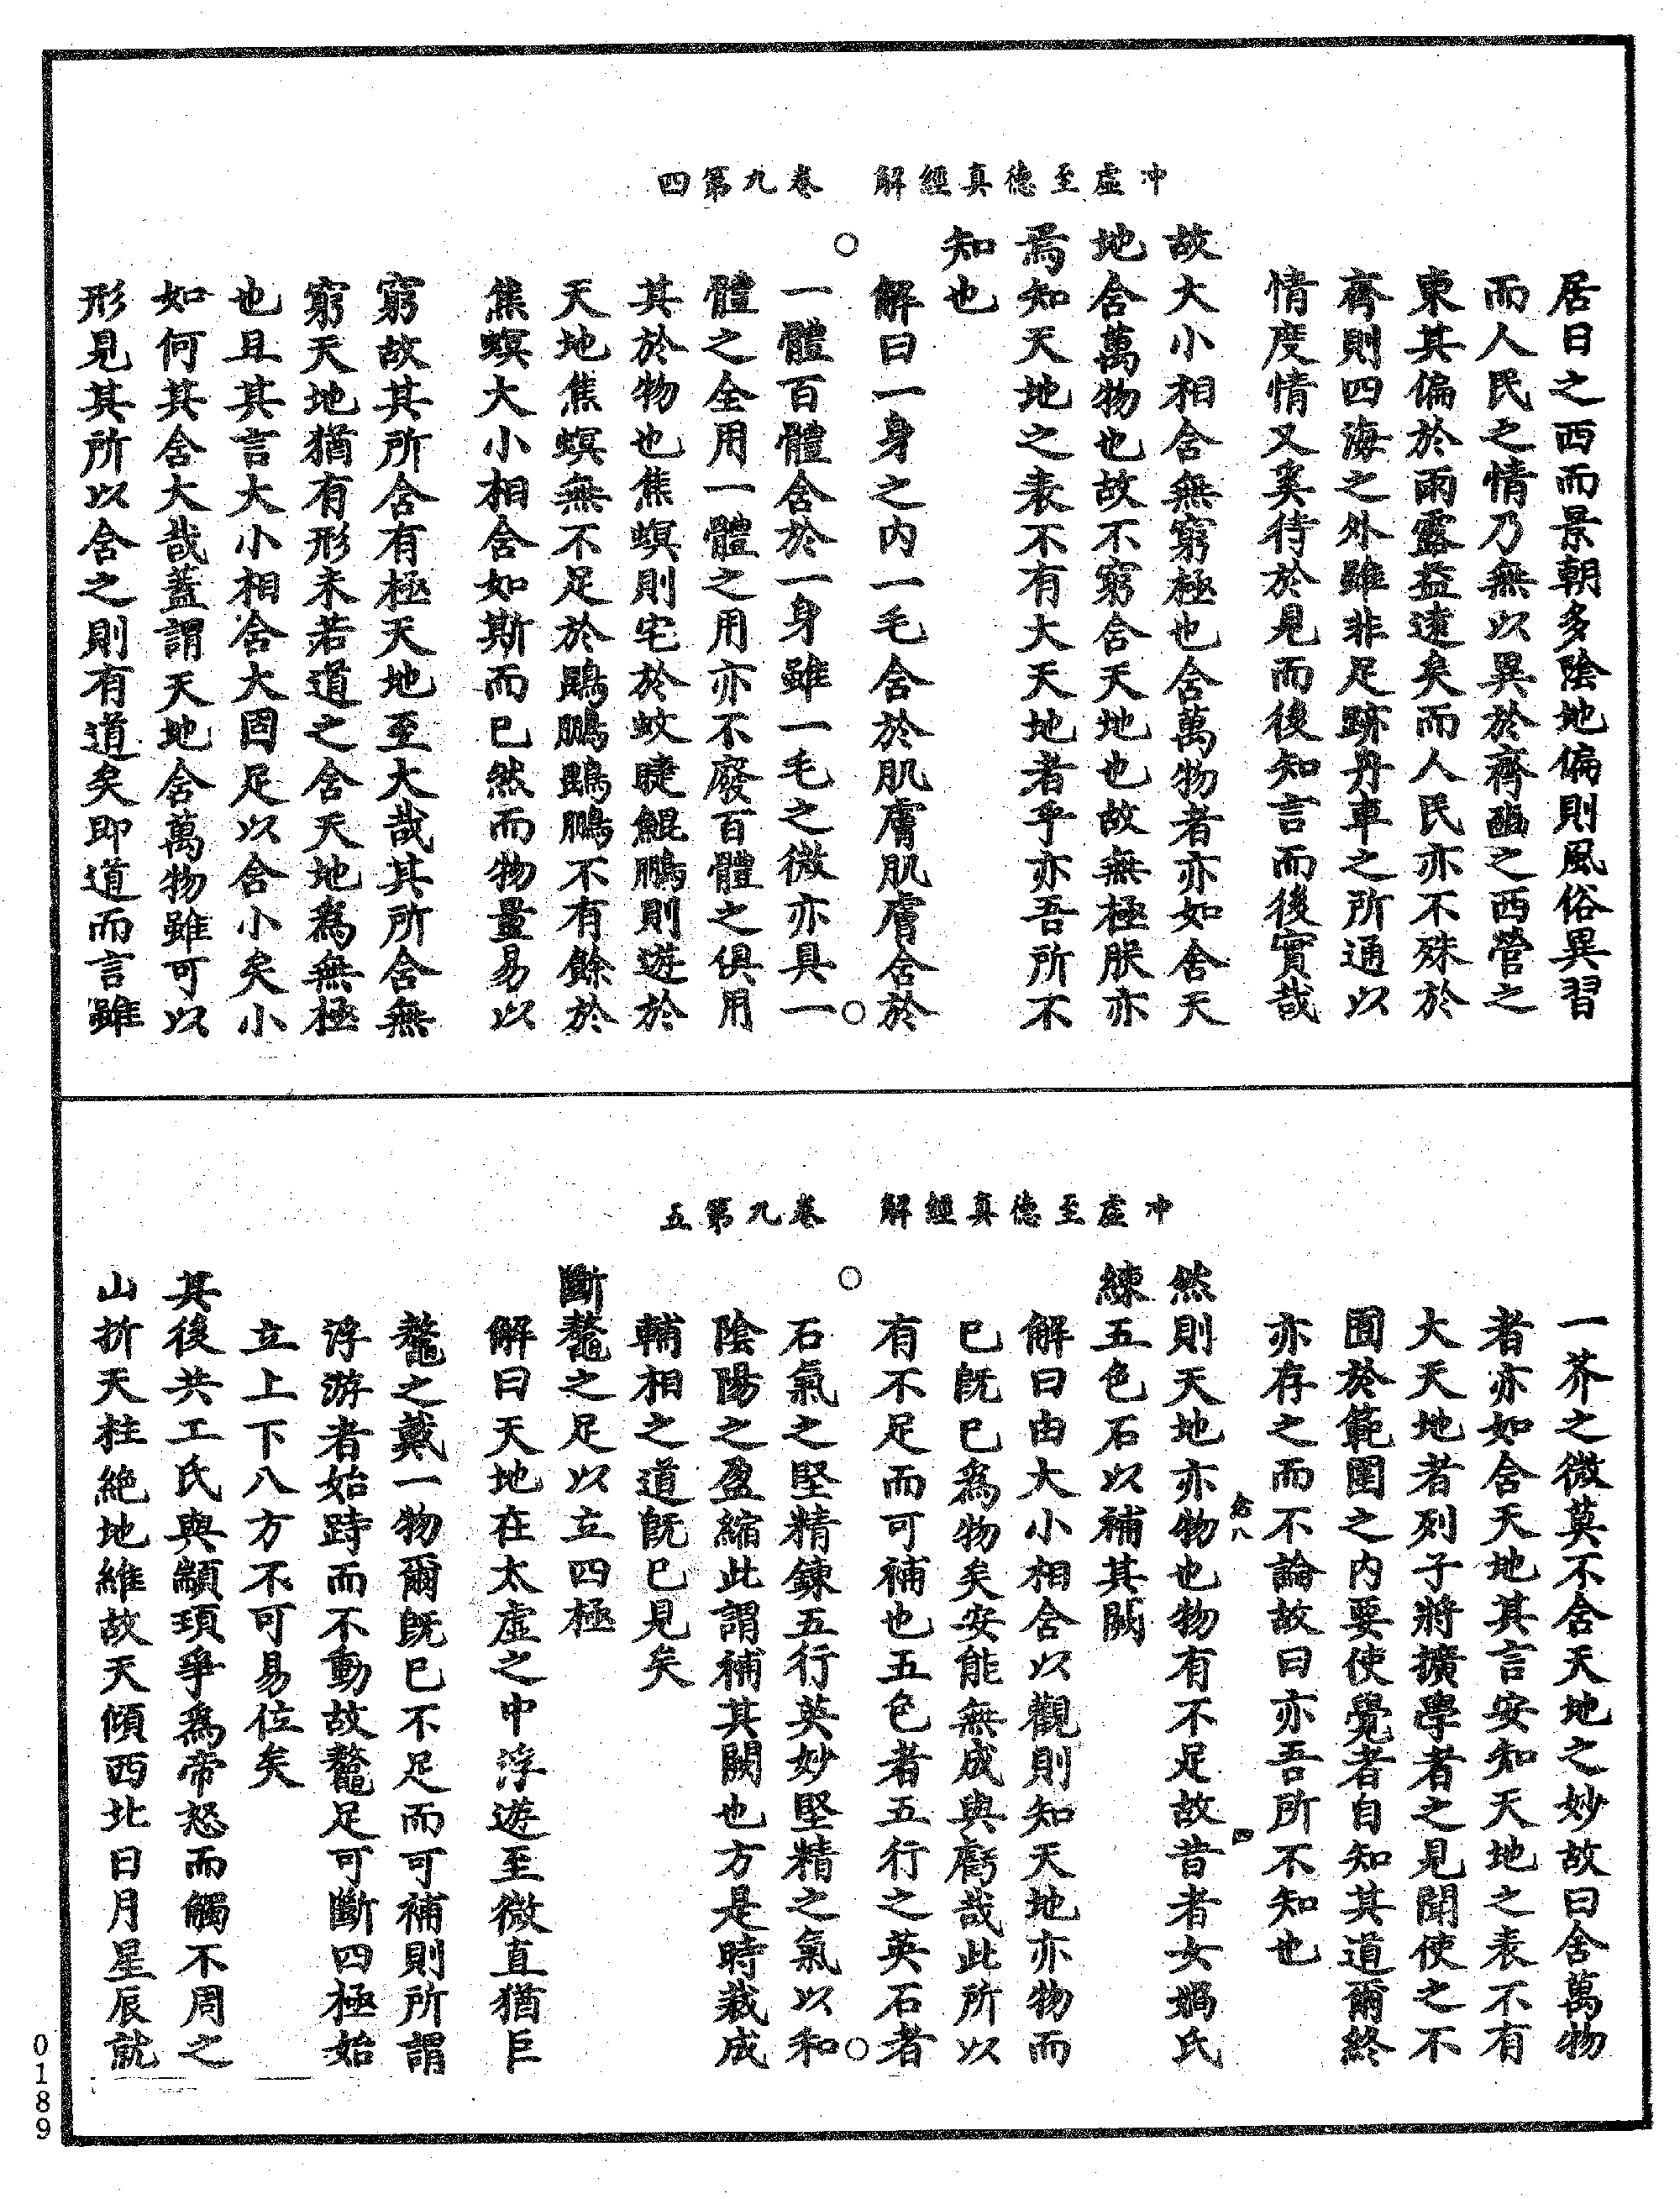 冲虛至德真經解　卷九第四
居日之西而景朝多陰地偏則風俗異習
而人民之情乃無以異於齊豳之西營之
東其偏於雨露益遠矣而人民亦不殊於
齊則四海之外雖非足跡舟車之所通以
情度情又奚待於見而後知言而後實哉
故大小相含無窮極也含萬物者亦如含天
地含萬物也故不窮含天地也故無極朕亦
焉知天地之表不有大天地者乎亦吾所不
知也
解曰一身之内一毛含於肌膚肌膚含於
一體百體含於一身雖一毛之微亦具一
體之全用一體之用亦不廢百體之俱用
其於物也焦螟則宅於蚊睫鯤鵬則遊於
天地焦螟無不足於鵾鵬鵾鵬不有餘於
焦螟大小相含如斯而已然而物量易以
窮故其所含有極天地至大哉其所含無
窮天地猶有形未若道之含天地為無極
也且其言大小相含大固足以含小矣小
如何其含大哉蓋謂天地含萬物雖可以
形見其所以含之則有道矣即道而言雖
冲虛至德真經解　卷九第五
一芥之微莫不含天地之妙故曰含萬物
者亦如含天地其言安知天地之表不有
大天地者列子將擴學者之見聞使之不
囿於範圍之内要使覺者自知其道爾終
亦存之而不論故曰亦吾所不知也
念八　四
然則天地亦物也物有不足故昔者女媧氏
練五色石以補其闕
解曰由大小相含以觀則知天地亦物而
已既已為物矣安能無成與虧哉此所以
有不足而可補也五色者五行之英石者
石氣之堅精鍊五行英妙堅精之氣以和
陰陽之盈縮此謂補其闕也方是時裁成
輔相之道既已見矣
斷鼇之足以立四極
解曰天地在太虛之中浮遊至微直猶巨
鼇之戴一物爾既已不足而可補則所謂
浮游者始跱而不動故鼇足可斷四極始
立上下八方不可易位矣
其後共工氏與顓頊爭為帝怒而觸不周之
山折天柱絶地維故天傾西北日月星辰就
0189